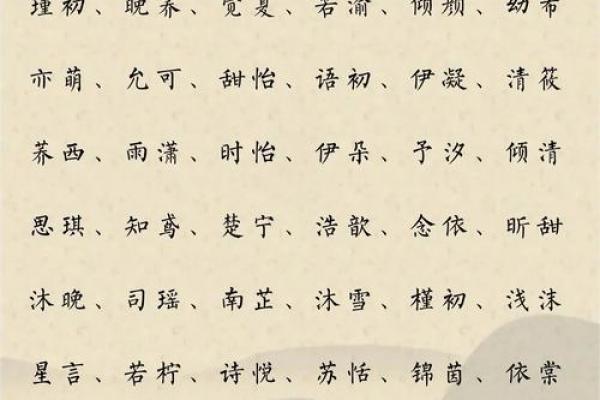 瑾初、晚荞、觉夏、若渝、倾颜、幼希
亦萌、允可、甜怡、语初、伊凝、清筱
荞西、雨潇、时怡、伊朵、予汐、倾清
思琪、知鸢、楚宁、浩歆、念依、昕甜
沐晚、司瑶、南芷、沐雪、槿初、浅沫
星言、若柠、诗悦、苏恬、锦茵、依棠